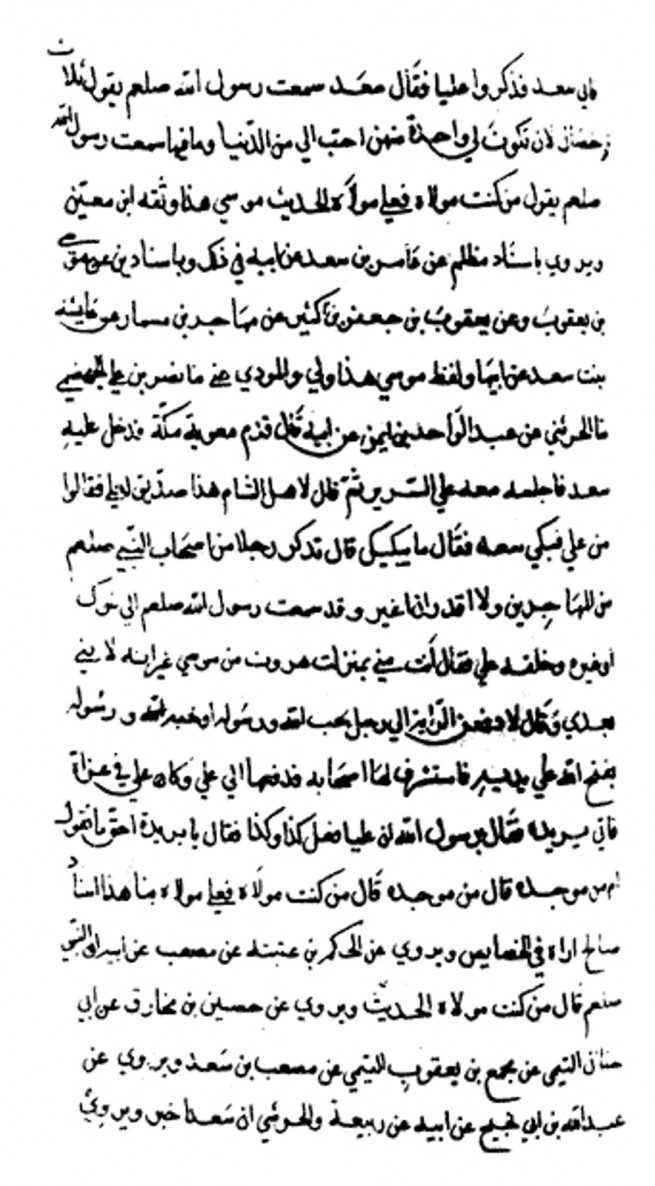 فاتي سعد فذكروا عليا فقال سعد سمعت رسول الله صلعم يقول ثلاث
خصال لان تكون لي واحدة منهن احب الي من الدنيا وما فيها سمعت رسول الله
صلعم يقول من كنت مولاه فعلي مولاه الحديث موسي هذا وثقه ابن معين
ويروي باسناد مظلم عن عامر بن سعد عن ابيه في ذلك وباسنادين عن
بن يعقوب وعن يعقوب بن جعفر بن كثير عن مهاجر بن مسمار عن عايشة
بنت سعد عن ابيها ولفظ موسي هذا ولي والمودي عني نا نصر بن علي الجهضمي
نا الحرشي عن عبد الواحد بن ايمن عن ابيه قال قدم معوية مكة فدخل عليه
سعد فاجلسه معه علي السرير ثم قال لاهل الشام هذا صديق لعلي فقالوا
من علي فبكي سعد فقال ما يبكيك قال تذكر رجلا من اصحاب النبي صلعم
من المهاجرين ولا اقدر ان اغير وقد سمعت رسول الله صلعم الي تبوك
او غيره وخلفه علي فقال انت مني بمنزلت هرون من موسي غير انه لا نبي
بعدي وقال لادفعن الراية الي رجل يحب الله ورسوله او يحبه الله ورسوله
يفتح الله علي يديه فاستشرف لها اصحابه فدفعها الي علي وكان علي في غزاة
فاتي بريدة فقال يرسول الله ان عليا فعل كذا وكذا فقال يا بريدة احق ما تقول
ام من موجدة قال من موجدة قال من كنت مولاه فعلي مولاه هذا اسناد
صالح اراه في الخصايص ويروي عن الحكم بن عتيبة عن مصعب عن ابيه ان النبي
صلعم قال من كنت مولاه الحديث ويروي عن حسين بن مخارق عن ابي
التيمي عن مجمع بن يعقوب التيمي عن مصعب بن سعد ويروي عن
عبد الله بن ابي نجيح عن ابيه عن ربيعة والحرشي ان سعدا خبر ويروي